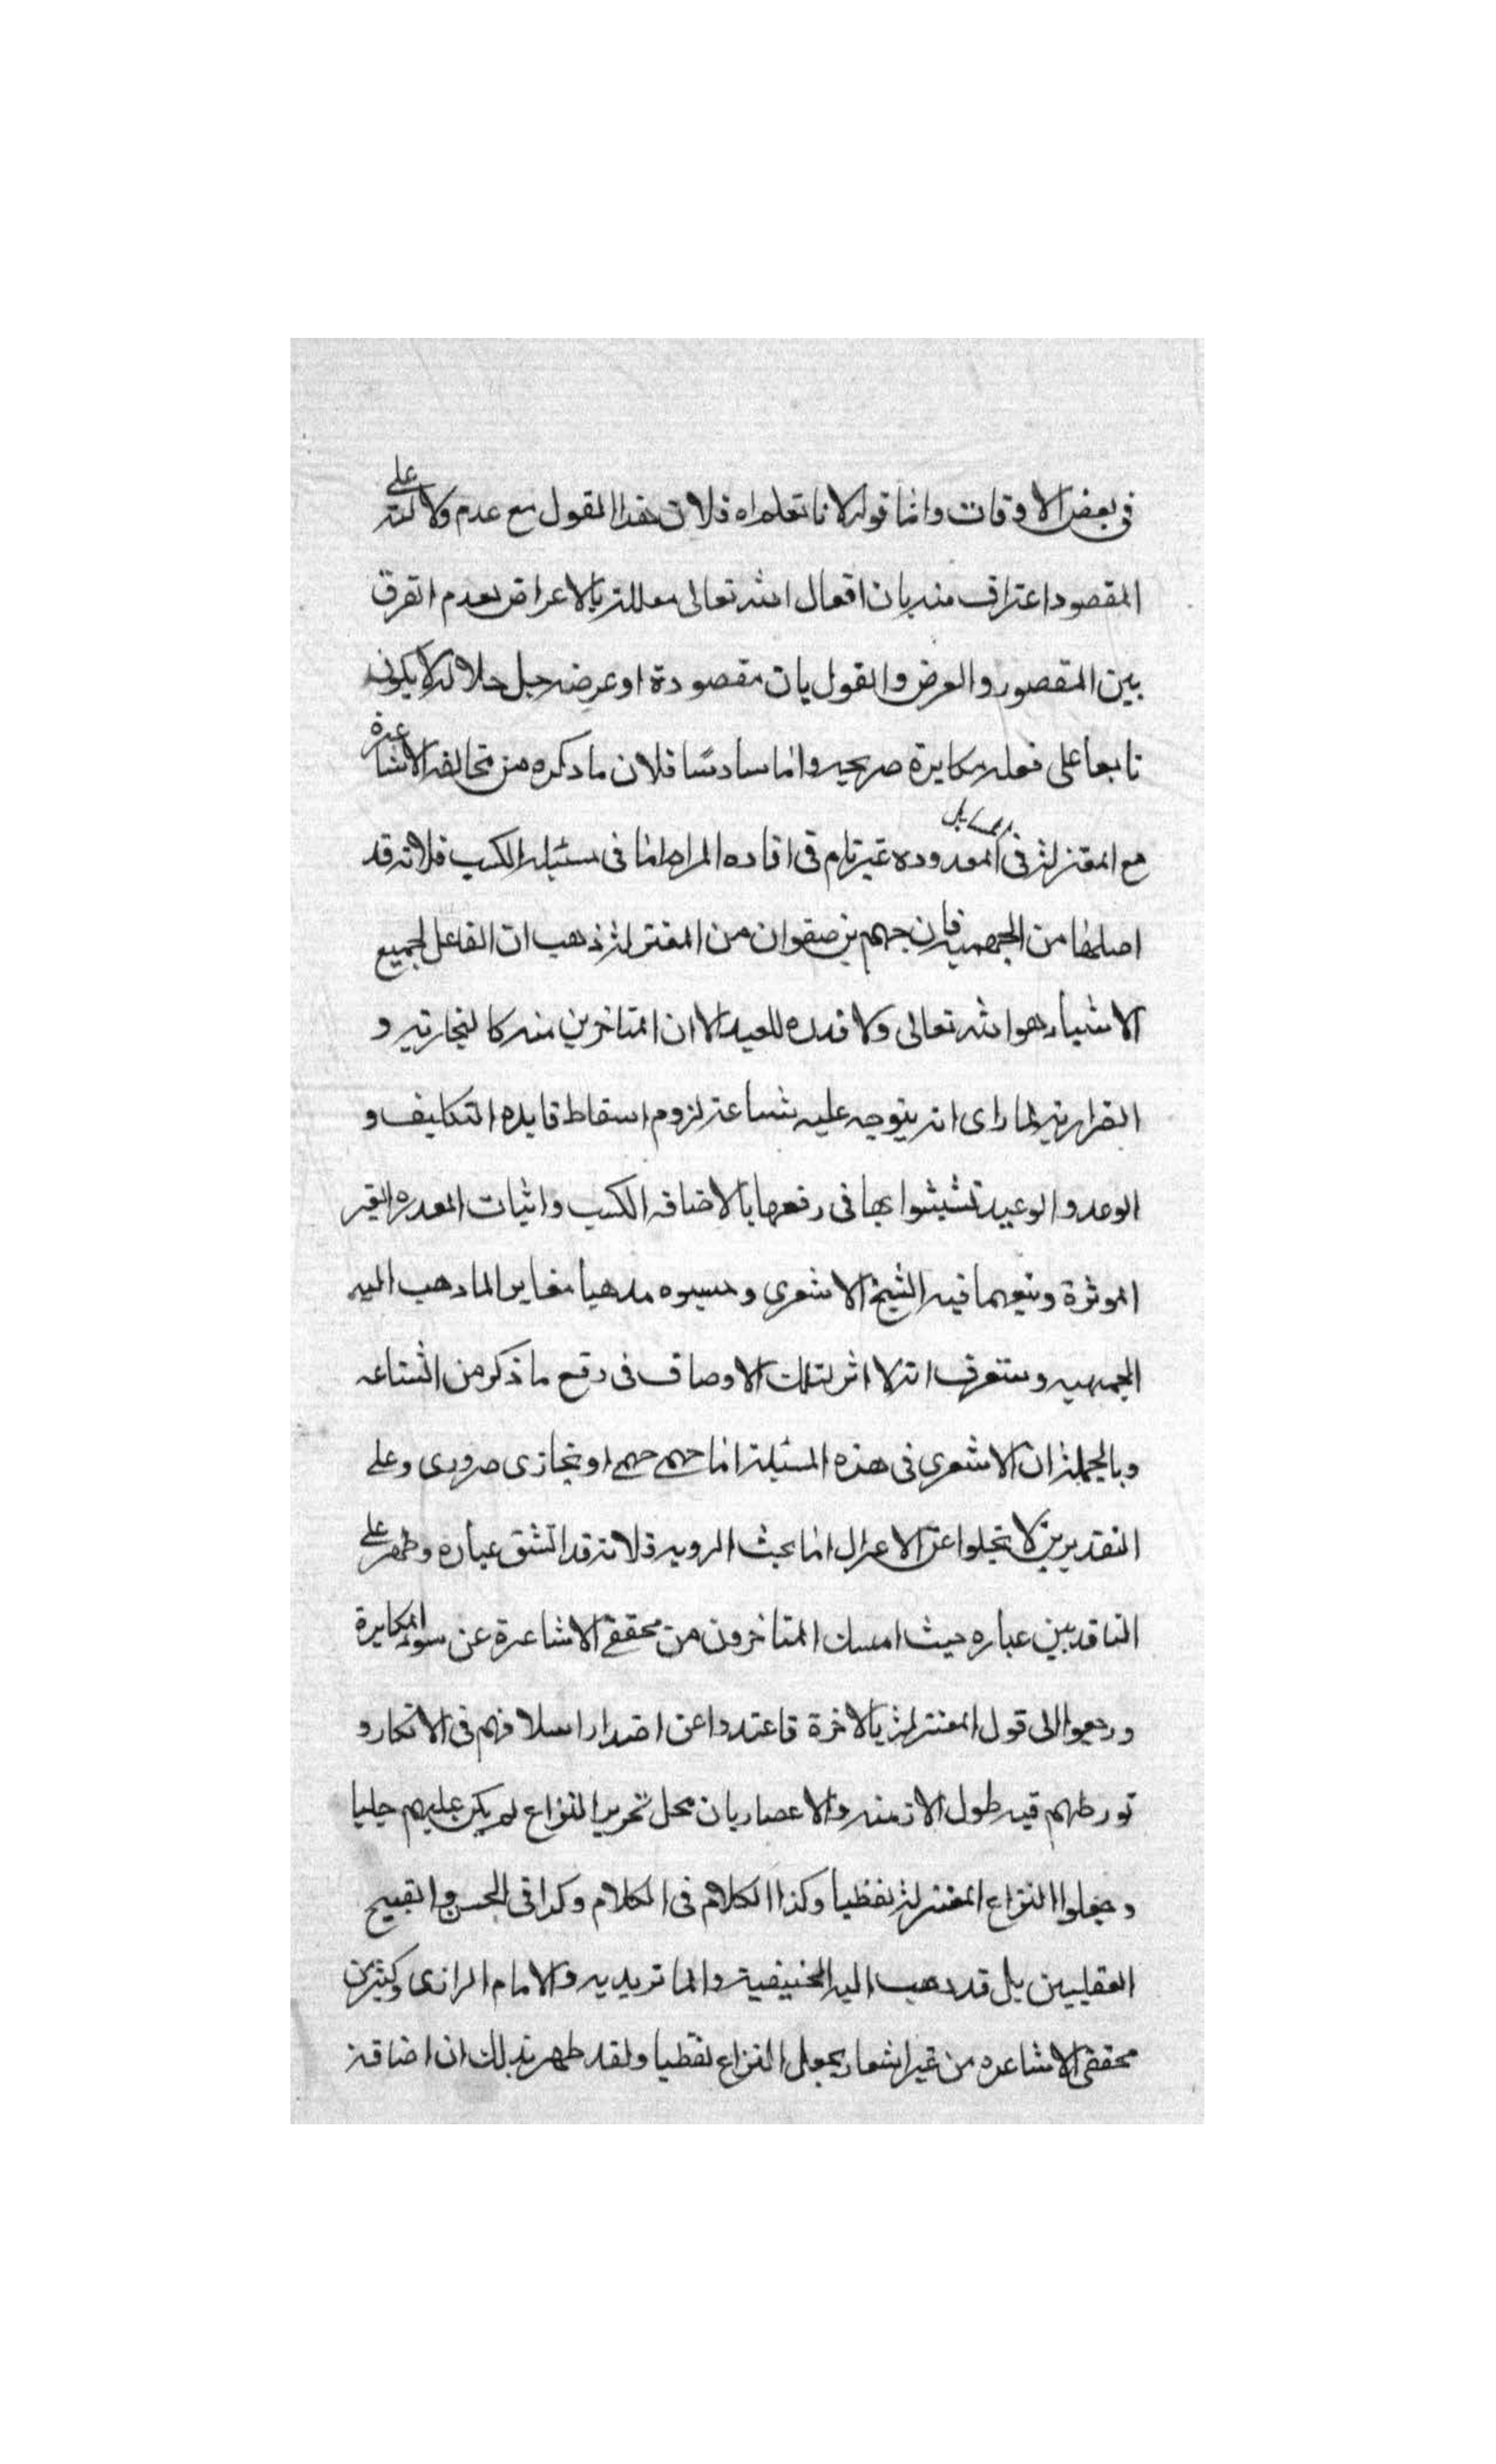 في بعض الاوقات واما قوله لانا نعلم اه فلان هذا القول مع عدم دلالته على
المقصود اعتراف منه بان افعال الله تعالى معللة بالاعراض لعدم الفرق
بين المقصود والعرض والقول بان مقصودة او عرضه جل جلاله لا يكون
تابعا على فعله مكابرة صريحه واما سادسا فلان ما ذكره من مخالفه الاشاعرة
مع المعتزلة في المسايل المعدوده غير تام في افاده المرام اما في مسئله الكسب فلانه قد
اصلها من الجهميه فان جهم بن صفوان من المعتزلة ذهب ان الفاعل لجميع
الاشياء هو الله تعالى ولا قدره للعبد الا ان المتاخرين منه كالنجارية و
الضرارية لما راى انه يتوجه عليه شناعة لزوم اسقاط فايده التكاليف و
الوعد والوعيد تشبثوا بها في رفعها بالاضافه الكسب واثبات القدره الغير
الموثرة وتبعهما فيه الشيخ الاشعري وحسبوه مذهبا مغايرا لما ذهب اليه
الجهميه وستعرف انه لا اثر لتلك الاوصاف في دفع ما ذكر من الشناعه
وبالجملة ان الاشعري في هذه المسئلة اما جهمي جهمي او نجاري ضروري وعلى
التقديرين لا تخلوا عن الاعزال اما بحث الرويه فلانه قد انشق عباره وظهر على
الناقدين عباره حيث امسك المتاخرون من محققي الاشاعرة عن سوء المكابرة
ورجعوا الى قول المعتزلة بالاخرة فاعتدوا عن اضرار اسلافهم في الانكار و
تورطهم فيه طول الازمنه والاعصار بان محل تحرير النزاع لم يكن عليهم جليا
وجعلوا النزاع المعتزلة لفظيا وكذا الكلام في الكلام وكذا في الحسن والقبيح
العقليين بل قد ذهب اليه الحنيفية والماتريديه والامام الرازى وكثير من
محققي الاشاعره من غير اشعار بجعل النزاع لفظيا ولقد ظهر بذلك ان اضافة